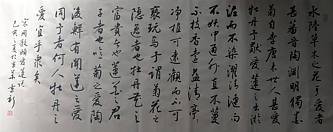 水陸草木之花可愛者
甚蕃晉陶淵明獨愛
菊自李唐來世人甚愛
牡丹予獨愛蓮之出淤
泥而不染濯清漣而
不妖中通外直不蔓
不枝香遠益清亭亭
净植可遠觀而不可
褻玩焉予謂菊花之
隱逸者也牡丹花之
富貴者也蓮花之君
子者也噫菊之愛陶
後鮮有聞蓮之愛
同予者何人牡丹之
愛宜乎衆矣
宋周敦頤愛蓮說
己亥